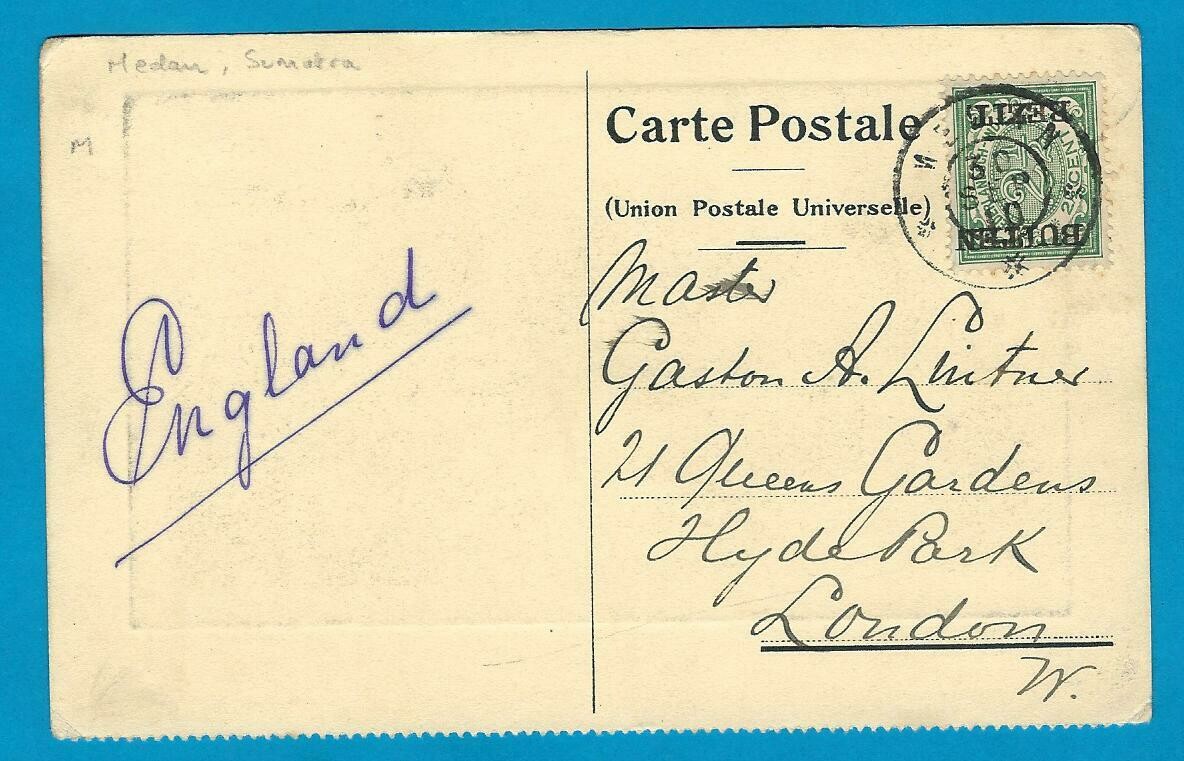 Medan, Sumatra
M
Carte Postale
(Union Postale Universelle)
BUITEN
BEZIT.
2½
CENT
England
Master
Gaston A. Lintner
21 Queens Gardens
Hyde Park
London
W.